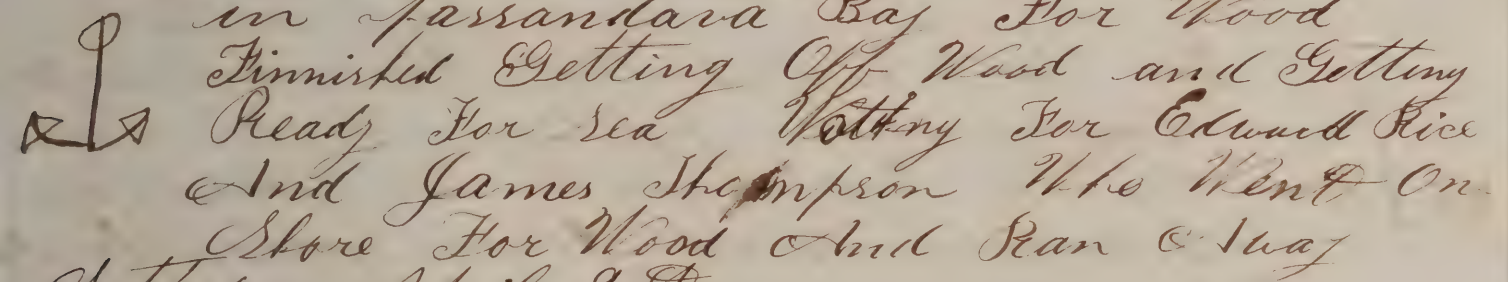 in Passandava Bay For Wood
Finnished Getting Off Wood and Getting
Ready For Sea Waiting For Edward Rice
And James Thompson Who Went On
Shore For Wood And Ran Away